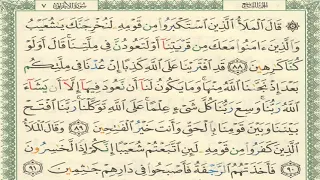 قَالَ ٱلْمَلَأُ ٱلَّذِينَ ٱسْتَكْبَرُوا۟ مِن قَوْمِهِۦ لَنُخْرِجَنَّكَ يَٰشُعَيْبُ
وَٱلَّذِينَ ءَامَنُوا۟ مَعَكَ مِن قَرْيَتِنَآ أَوْ لَتَعُودُنَّ فِى مِلَّتِنَا قَالَ أَوَلَوْ
كُنَّا كَٰرِهِينَ ٨٨ قَدِ ٱفْتَرَيْنَا عَلَى ٱللَّهِ كَذِبًا إِنْ عُدْنَا فِى مِلَّتِكُم
بَعْدَ إِذْ نَجَّىٰنَا ٱللَّهُ مِنْهَا وَمَا يَكُونُ لَنَآ أَن نَّعُودَ فِيهَآ إِلَّآ أَن يَشَآءَ
ٱللَّهُ رَبُّنَا وَسِعَ رَبُّنَا كُلَّ شَىْءٍ عِلْمًا عَلَى ٱللَّهِ تَوَكَّلْنَا رَبَّنَا ٱفْتَحْ
بَيْنَنَا وَبَيْنَ قَوْمِنَا بِٱلْحَقِّ وَأَنتَ خَيْرُ ٱلْفَٰتِحِينَ ٨٩ وَقَالَ ٱلْمَلَأُ
ٱلَّذِينَ كَفَرُوا۟ مِن قَوْمِهِۦ لَئِنِ ٱتَّبَعْتُمْ شُعَيْبًا إِنَّكُمْ إِذًا لَّخَٰسِرُونَ
٩٠ فَأَخَذَتْهُمُ ٱلرَّجْفَةُ فَأَصْبَحُوا۟ فِى دَارِهِمْ جَٰثِمِينَ ٩١